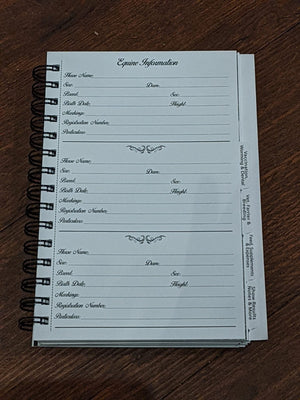 Equine Information
Horse Name:
Sire: Dam:
Breed: Sex:
Birth Date: Height:
Markings:
Registration Number:
Particulars:
Horse Name:
Sire: Dam:
Breed: Sex:
Birth Date: Height:
Markings:
Registration Number:
Particulars:
Horse Name:
Sire: Dam:
Breed: Sex:
Birth Date: Height:
Markings:
Registration Number:
Particulars:
Vaccination,
Worming & Dental
Vet, Farrier &
Breeding
Feed, Supplements
& Expenses
Show Results
Notes & More